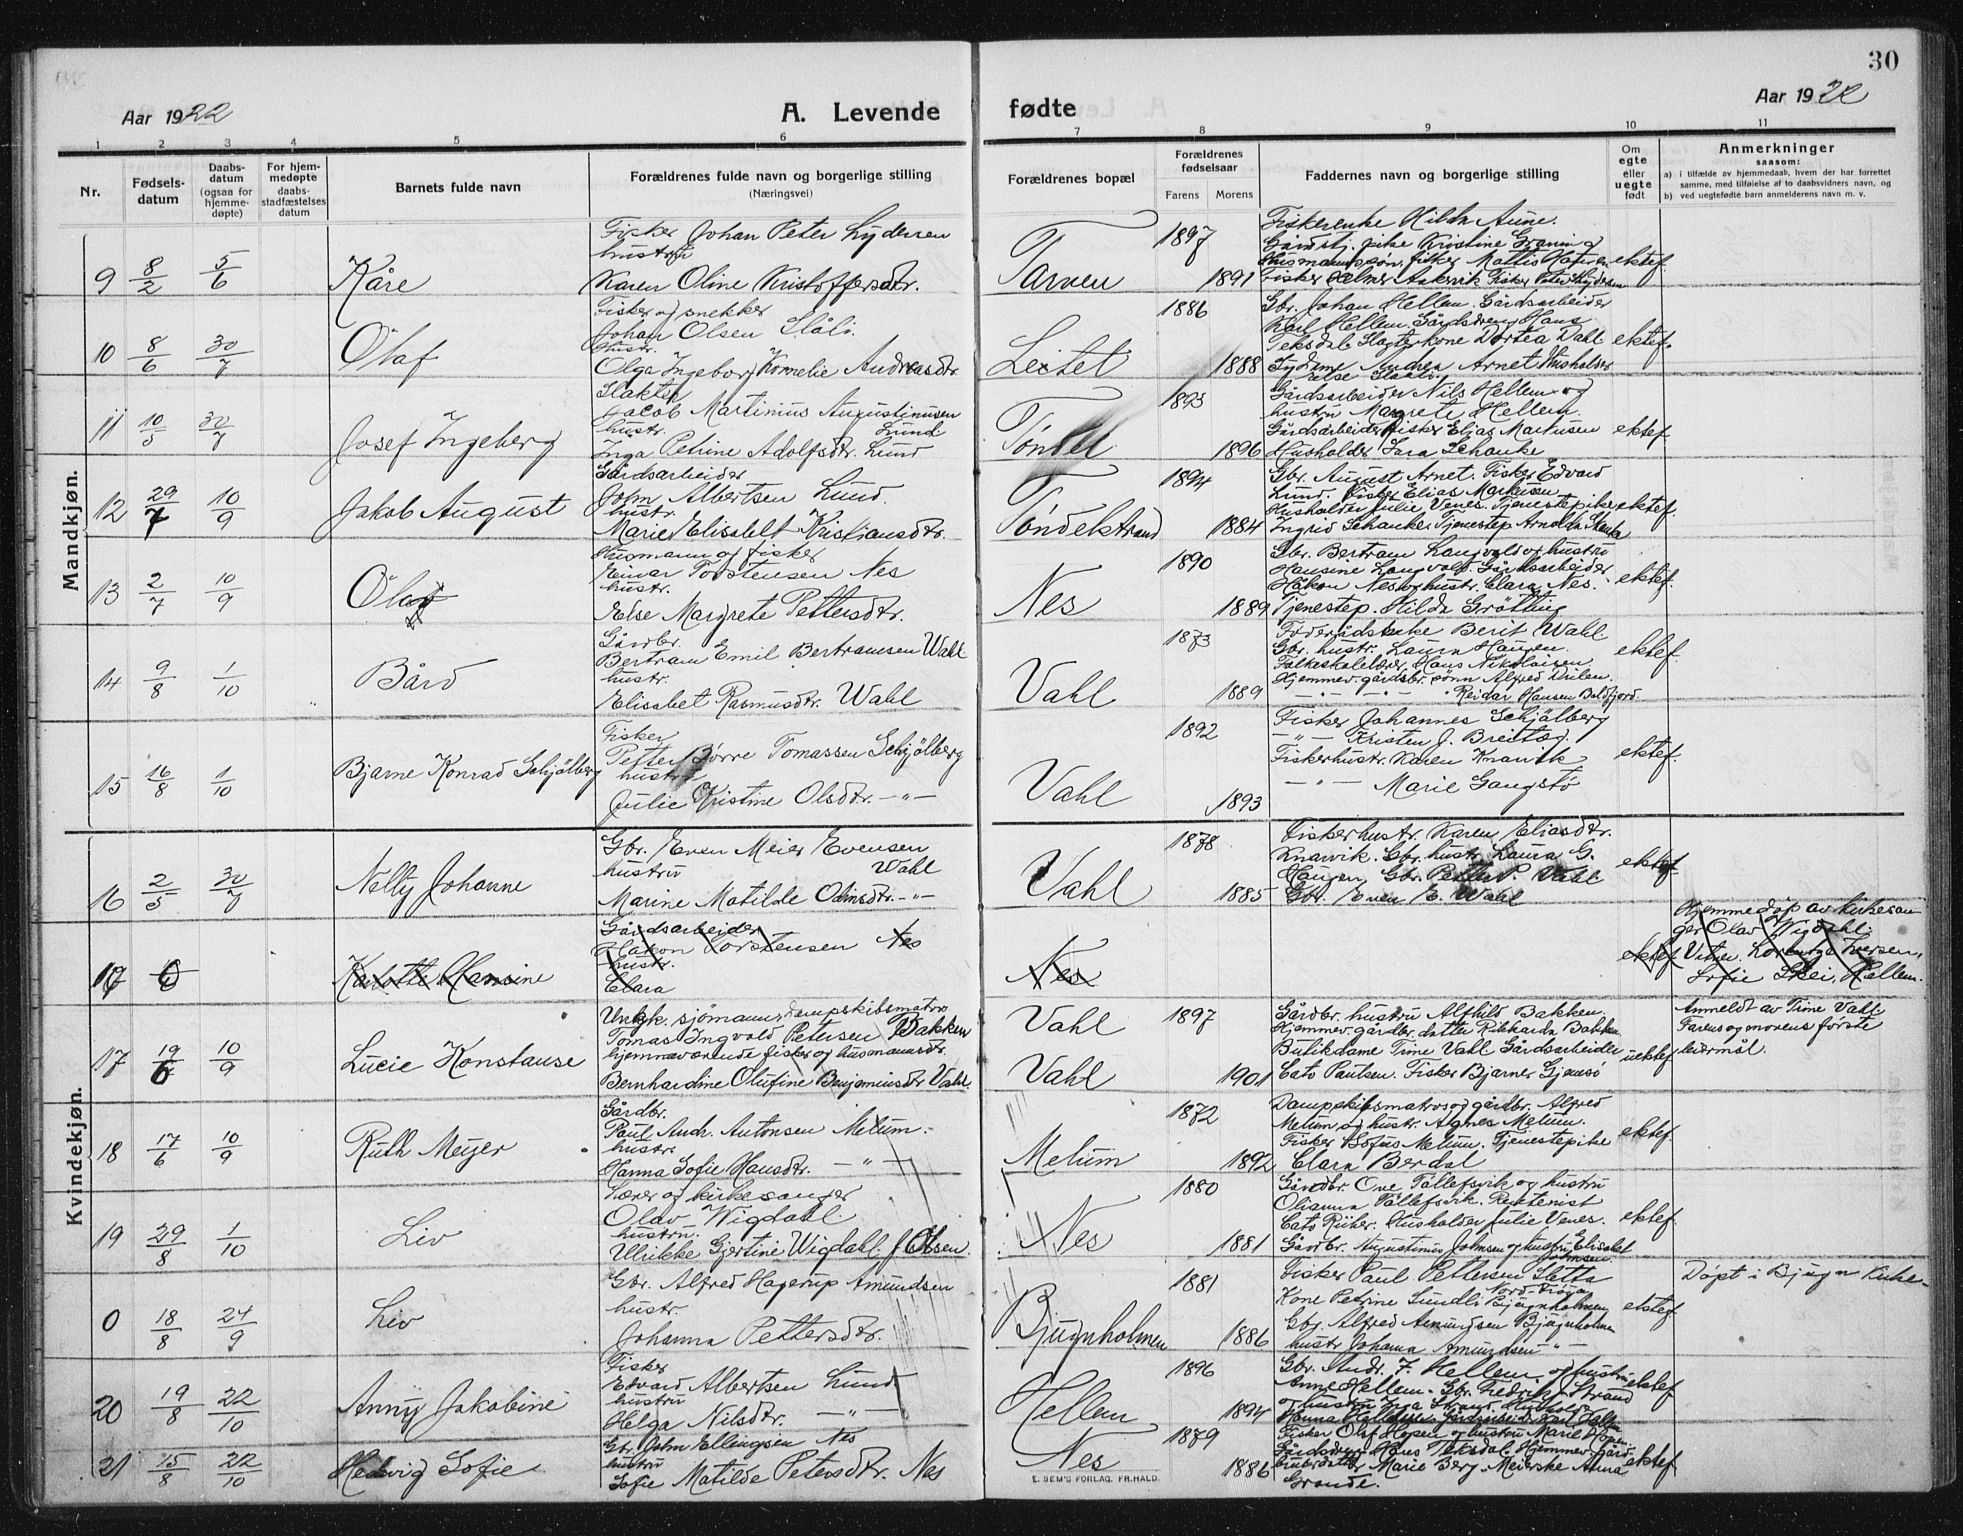 30
Aar 1922
A. Levende
fødte
Aar 1922
1 2 3 4 5 6 7 8 9 10 11
Nr.
Fødsels-
datum
Daabs-
datum
(ogsaa for
hjemme-
døpte)
For hjem-
medøpte
daabs-
stadfæstelses
datum
Barnets fulde navn
Forældrenes fulde navn og borgerlige stilling
(Næringsvei)
Forældrenes bopæl
Forældrenes
fødselsaar
Farens Morens
Faddernes navn og borgerlige stilling
Om
egte
eller
uegte
født
Anmerkninger
saasom:
a) i tilfælde av hjemmedaab, hvem der har forrettet
samme, med tilføielse af to daabsvidners navn, og
b) ved uegtefødte barn anmelderens navn m. v.
Mandkjøn.
9 8/2 5/6 Kåre
Fisker Johan Peter Lydersen
hustru
Karen Oline Kristoffersdtr.
Tarven 1897 1891
Fiskerenke Hilda Aune.
Gårdstj. pike Kristine Graning
Husmannssøn, fisker Mattis Hansen
ektef.
10 8/6 30/7 Olaf
Fisker og snekker
Johan Olsen Slålø
hustr.
Olga Ingeborg Kornelie Andreasdtr.
Leitet 1886 1888
Gbr. Johan Hellem. Gårdsarbeider
Karl Hellem. Gårdsdreng Hans
Teksdal. Slagterkone Dortea Dahl
Sydame Andrea Arnet Husholder
ektef.
11 10/5 30/7 Josef Ingeberg
Slakter
Jacob Martinius Augustinusen
hustr. Lund.
Inga Petrine Adolfsdtr. Lund
Töndel 1893 1896
Gårdsarbeider Nils Hellem og
hustru Margrete Hellem.
Gårdsarbeider fisker Elias Markusen
Husholder Sara Schanke
ektef.
12 29/7 10/9 Jakob August
Gårdsarbeider
John Albertsen Lund.
hustr.
Marie Elisabet Kristiansdtr.
Töndelstrand 1894 1884
Gbr. August Arnet. Fisker Edvard
Lund. Fisker Elias Markusen
Husholder Julie Venes. Tjenestepike
Ingrid Schanke. Tjenestep. Arnolda
ektef.
13 2/7 10/9 Olav
Husmann og fisker
Einar Torstensen Nes
hustr.
Else Margrete Pettersdtr.
Nes 1890 1889
Gbr. Bertram Langvold og hustru
Hansine Langvold. Gårdsarbeider
Håkon Nes og hustr. Clara Nes.
Tjenestep. Hilda Grötting
ektef.
14 9/8 1/10 Bård
Gårdbr.
Bertram Emil Bertramsen Wahl
hustr.
Elisabet Rasmusdtr. Wahl
Vahl 1873 1889
Föderådsenke Berit Wahl
Gbr. hustr. Laura Haugen.
Folkeskolelærer Hans Nikolaisen
Hjemmev. gårdbr. sønn Alfred
— " — " — " Reidar Hansen
ektef.
15 16/8 1/10 Bjarne Konrad Schjölberg
Fisker
Petter Börre Tomassen Schjölberg
hustru
Julie Kristine Olsdtr. — " —
Vahl 1892 1893
Fisker Johannes Schjölberg
— " — Kristen J. Breitög.
Fiskerhustr. Karen Knarvik
— " — Marie Gangstø
ektef.
Kvindekjøn.
16 2/5 30/7 Nelly Johanne
Gbr. Even Meier Evensen
hustru Wahl
Marine Matilde Odinsdtr. — " —
Vahl 1878 1885
Fiskerhustr. Karen Eliasdtr.
Knarvik. Gbr. hustr. Laura G.
Haugen. Gbr. Petter P. Vahl
Gbr. Even E. Wahl
ektef.
17 Karlotte Hansine
Gårdsarbeider
Håkon Torstensen Nes
hustr.
Clara
Nes
ektef.
Hjemmedöp av kirkesan-
ger Olav Wigdahl.
Vitner Iversen,
Sofie Skei, Hellem.
17 19/6 10/9 Lucie Konstanse
Ungk. sjömann, dampskibsmatros
Tomas Ingvald Petersen Bakken
hjemmeværende fisker og husmannsdtr.
Bernhardine Olufine Benjaminsdtr. Vahl.
Vahl 1897
Vahl 1901
Gårdbr. hustru Alfhild Bakken.
Hjemmev. gårdbr. datter Rikharda Bakken
Butikdame Trine Vahl. Gårdsarbeider
Cato Paulsen. Fisker Bjarne Gjemsø
uektef.
Anmeldt av Trine Vahl
Farens og morens förste
leiermål.
18 17/6 10/9 Ruth Meyer
Gårdbr.
Paul Andr. Antonsen Melum.
hustr.
Hanna Sofie Hansdtr. — " —
Melum 1872 1892
Dampskibsmatros og gårdbr. Alfred
Melum og hustr. Agnes Melum.
Fisker Sofus Melum. Tjenestepike
Clara Berdal
ektef.
19 29/8 1/10 Liv
Lærer og kirkesanger
Olav Wigdahl.
hustru.
Ulrikke Gjertine Wigdahl f. Olsen.
Nes 1880 1881
Gårdbr. Ove Tøllefsvik og hustru
Olianna Tøllefsvik. Rentenist
Cato Riiber. Husholder Julie Venes.
Gårdbr. Augustinus Johnsen og hustru Elisabet
Johnsen.
ektef.
0 18/8 24/9 Liv
Gbr. Alfred Hagerup Amundsen
hustr.
Johanna Pettersdtr.
Bjugnholmen 1881 1886
Fisker Paul Pettersen Sletta
Nord-Fröya
Kone Petrine Sundli Bjugnholmen
Gbr. Alfred Amundsen Bjugnholmen
hustr Johanna Amundsen — " —
ektef.
Döpt i Bjugn Kirke
20 19/8 22/10 Anny Jakobine
Fisker
Edvard Albertsen Lund
hustru
Helga Nilsdtr. — " —
Hellem 1896 1894
Gbr. Andr. J. Hellem og hustru
Anne Hellem. Gbr. Fredrik Strand
og hustru Inga Strand. Husholder
ektef.
21 15/8 22/10 Hedvig Sofie
Gbr. John Ellingsen Nes
hustru
Sofie Matilde Petersdtr. Nes
Nes 1879 1886
Fisker Olaf Hopen og hustru Marie Hopen
Gårdsdreng Hans Teksdal. Hjemmev. gård-
brukerdatter Marie Berg. Meierske Anna
Grande.
ektef.
E. SEM'S FORLAG. FR.HALD.